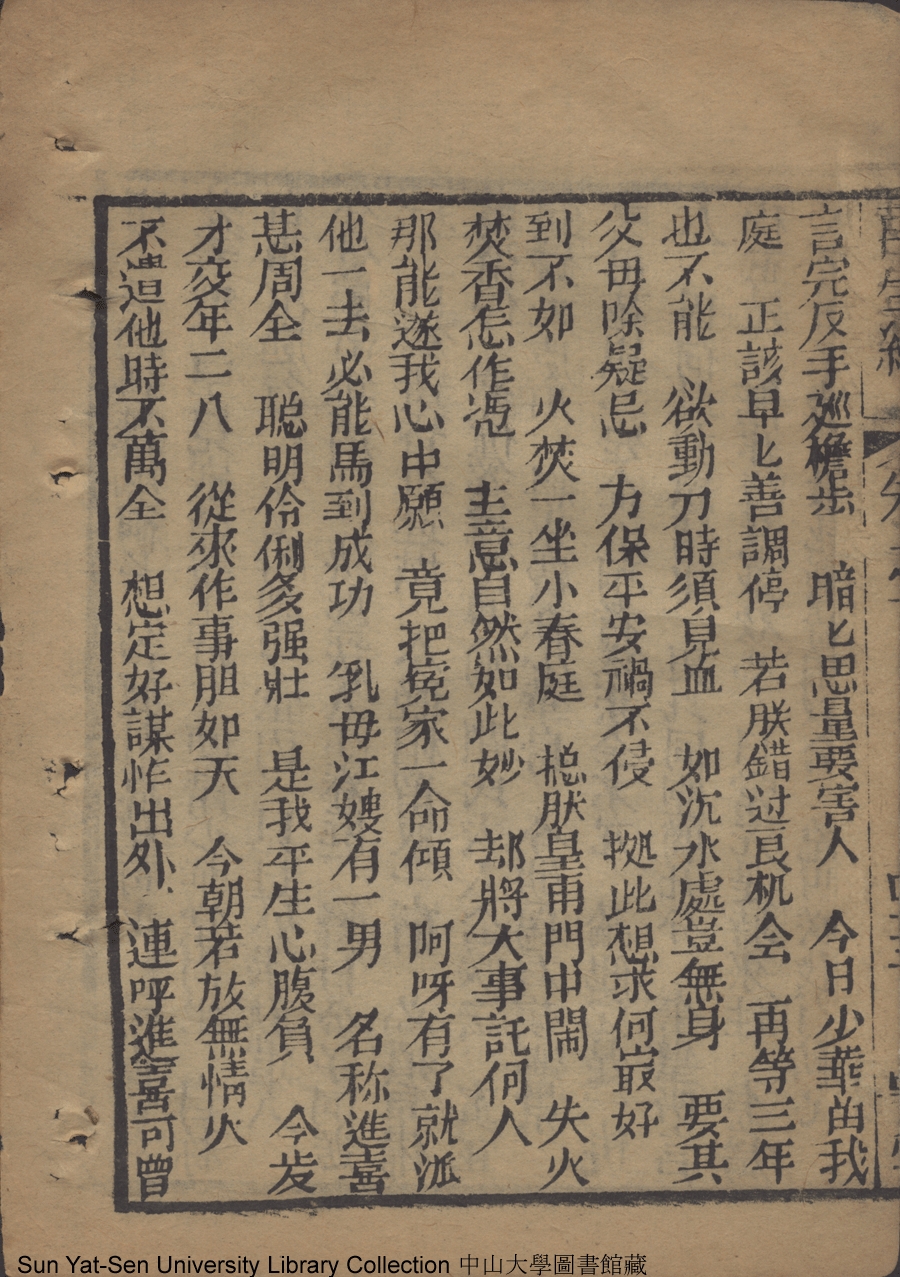 言完反手巡檐步　暗匕思量要害人　今日少華由我
庭　正該早匕善調停　若朕錯过良机会　再等三年
也不能　欲動刀時須見血　如沉水處豈無身　要其
父毋除疑忌　方保平安禍不侵　拠此想求何㝡好
到不如　火焚一坐小春庭　搃朕皇甫門中閙　失火
焚香怎作凴　主意自然如此妙　却將大事託何人
那能遂我心中願　竟把寃家一命傾　阿呀有了就泒
他一去必能馬到成功　乳毋江嫂有一男　名称進喜
甚周全　聰明伶俐多强壯　是我平生心腹負　今歲
才交年二八　從來作事胆如天　今朝若放無情火
不遣他時不萬全　想定好謀忙出外　連呼進喜可曾
Sun Yat-Sen University Library Collection 中山大學圖書館藏